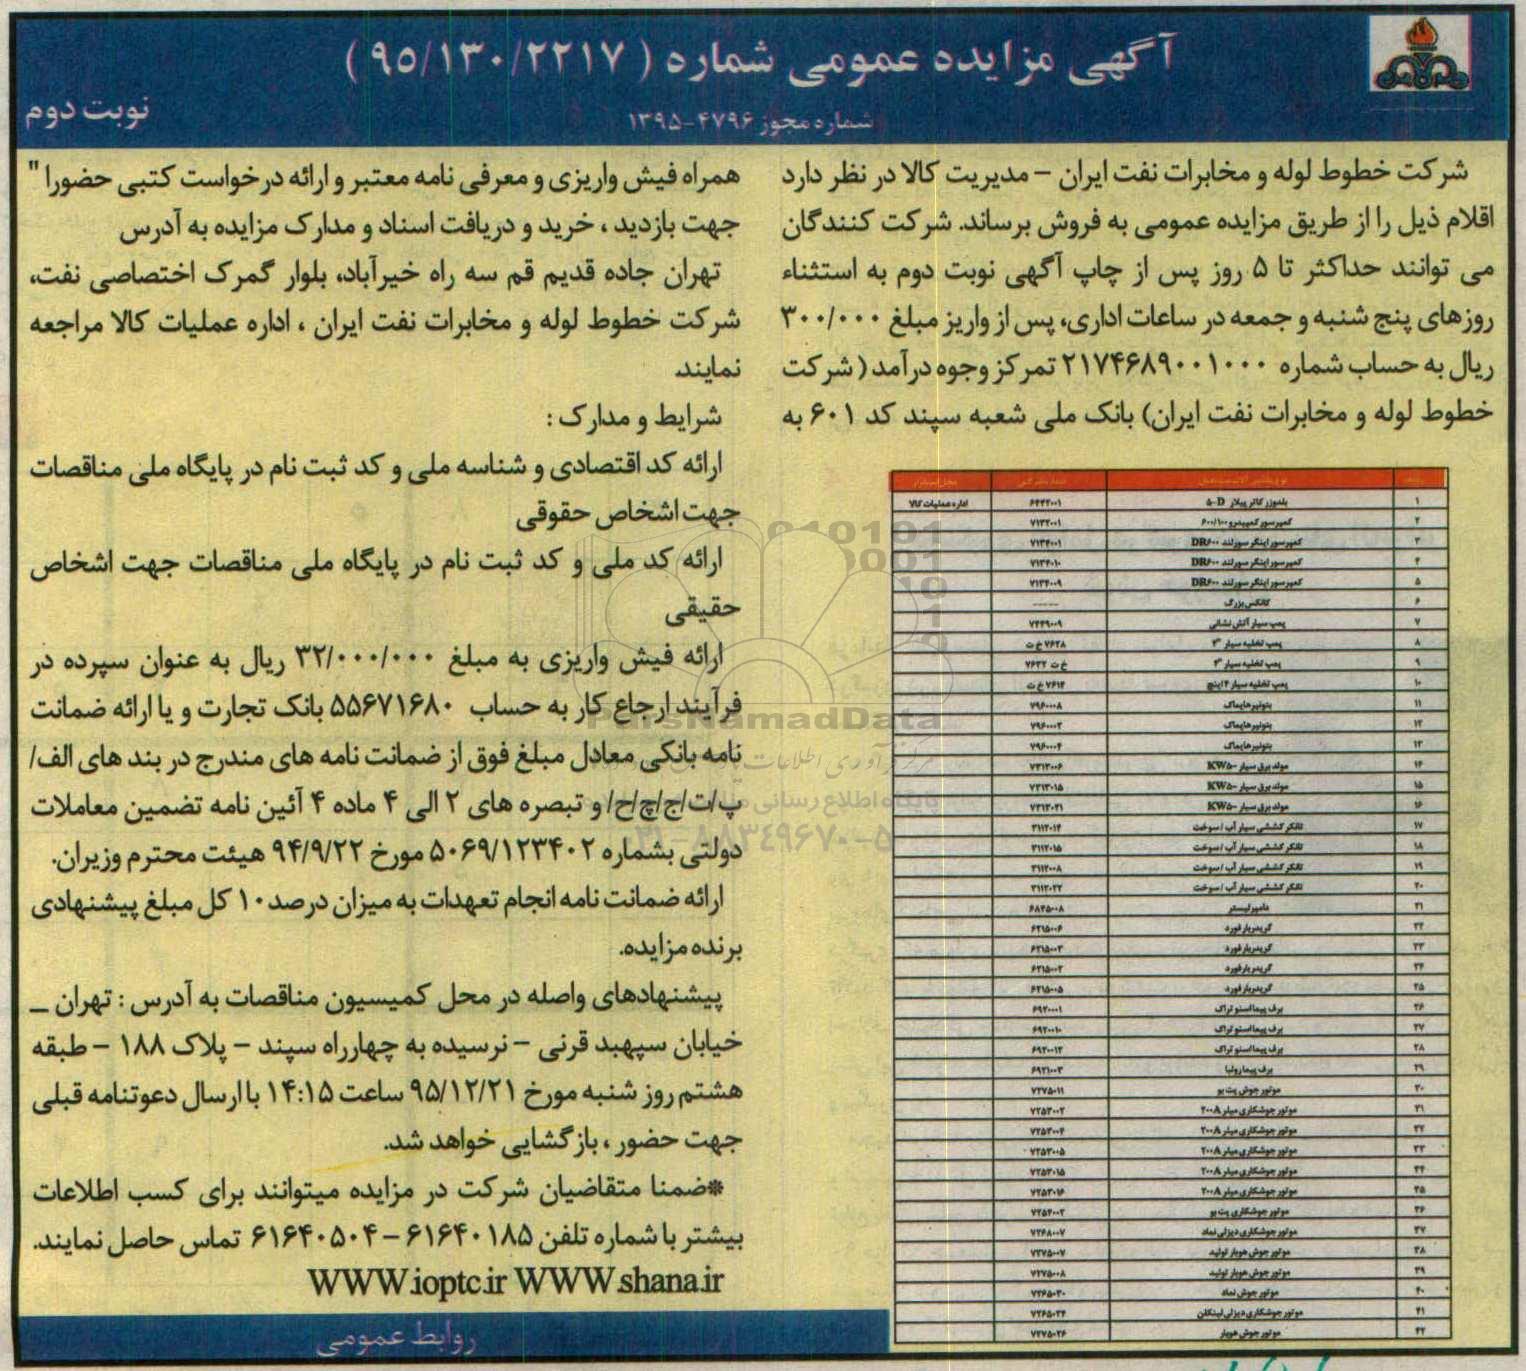 آگهی مزایده عمومی شماره ( ۹۵/۱۳۰/۲۲۱۷ )
شماره مجوز ۴۷۹۶-۱۳۹۵
نوبت دوم
شرکت خطوط لوله و مخابرات نفت ایران – مدیریت کالا در نظر دارد
اقلام ذیل را از طریق مزایده عمومی به فروش برساند. شرکت کنندگان
می توانند حداکثر تا ۵ روز پس از چاپ آگهی نوبت دوم به استثناء
روزهای پنج شنبه و جمعه در ساعات اداری، پس از واریز مبلغ ۳۰۰/۰۰۰
ریال به حساب شماره ۲۱۷۴۶۸۹۰۰۱۰۰۰ تمرکز وجوه درآمد ( شرکت
خطوط لوله و مخابرات نفت ایران) بانک ملی شعبه سپند کد ۶۰۱ به
۱ بلدوزر کاترپیلار D-۵ ۶۴۴۲۰۰۱ اداره عملیات کالا
۲ ۷۱۳۲۰۰۱
۳ کمپرسور اینگرسورلند DR۶۰۰ ۷۱۳۴۰۰۱
۴ کمپرسور اینگرسورلند DR۶۰۰ ۷۱۳۴۰۱۰
۵ کمپرسور اینگرسورلند DR۶۰۰ ۷۱۳۴۰۰۹
۶ کانکس بزرگ -----
۷ پمپ سیار آتش نشانی ۷۴۴۹۰۰۹
۸ پمپ تخلیه سیار ۳" ۷۶۲۸ خ ت
۹ پمپ تخلیه سیار ۳" ۷۶۲۲ خ ت
۱۰ پمپ تخلیه سیار ۴ اینچ ۷۶۱۴ خ ت
۱۱ بتونیر هایماک ۷۹۶۰۰۰۸
۱۲ بتونیر هایماک ۷۹۶۰۰۰۲
۱۳ بتونیر هایماک ۷۹۶۰۰۰۴
۱۴ مولد برق سیار KW۵۰ ۷۳۱۳۰۰۶
۱۵ مولد برق سیار KW۵۰ ۷۳۱۳۰۱۵
۱۶ مولد برق سیار KW۵۰ ۷۳۱۳۰۳۱
۱۷ تانکر کششی سیار آب / سوخت ۳۱۱۲۰۱۴
۱۸ تانکر کششی سیار آب / سوخت ۳۱۱۲۰۱۵
۱۹ تانکر کششی سیار آب / سوخت ۳۱۱۲۰۰۸
۲۰ تانکر کششی سیار آب / سوخت ۳۱۱۲۰۲۲
۲۱ دامپر لیستر ۶۸۴۵۰۰۸
۲۲ گریدر بارفورد ۶۲۱۵۰۰۶
۲۳ گریدر بارفورد ۶۲۱۵۰۰۳
۲۴ گریدر بارفورد ۶۲۱۵۰۰۲
۲۵ گریدر بارفورد ۶۲۱۵۰۰۵
۲۶ برف پیما اسنو تراک ۶۹۲۰۰۰۱
۲۷ برف پیما اسنو تراک ۶۹۲۰۰۱۰
۲۸ برف پیما اسنو تراک ۶۹۲۰۰۱۲
۲۹ برف پیما رولبا ۶۹۲۱۰۰۳
۳۰ موتور جوش پت بو ۷۲۷۵۰۱۱
۳۱ موتور جوشکاری میلر ۲۰۰A ۷۲۵۳۰۰۲
۳۲ موتور جوشکاری میلر ۲۰۰A ۷۲۵۳۰۰۴
۳۳ موتور جوشکاری میلر ۲۰۰A ۷۲۵۳۰۰۵
۳۴ موتور جوشکاری میلر ۲۰۰A ۷۲۵۳۰۱۵
۳۵ موتور جوشکاری میلر ۲۰۰A ۷۲۵۳۰۱۶
۳۶ موتور جوشکاری پت بو ۷۲۵۴۰۰۲
۳۷ موتور جوشکاری دیزلی نماد ۷۲۶۸۰۰۷
۳۸ موتور جوش هوبار تولید ۷۲۷۵۰۰۷
۳۹ موتور جوش هوبار تولید ۷۲۷۵۰۰۸
۴۰ موتور جوش نماد ۷۲۶۵۰۲۰
۴۱ موتور جوشکاری دیزلی لینکلن ۷۲۶۵۰۲۴
۴۲ موتور جوش هوبار ۷۲۷۵۰۲۶
همراه فیش واریزی و معرفی نامه معتبر و ارائه درخواست کتبی حضورا "
جهت بازدید ، خرید و دریافت اسناد و مدارک مزایده به آدرس
تهران جاده قدیم قم سه راه خیرآباد، بلوار گمرک اختصاصی نفت،
شرکت خطوط لوله و مخابرات نفت ایران ، اداره عملیات کالا مراجعه
نمایند.
شرایط و مدارک :
ارائه کد اقتصادی و شناسه ملی و کد ثبت نام در پایگاه ملی مناقصات
جهت اشخاص حقوقی
ارائه کد ملی و کد ثبت نام در پایگاه ملی مناقصات جهت اشخاص
حقیقی
ارائه فیش واریزی به مبلغ ۳۲/۰۰۰/۰۰۰ ریال به عنوان سپرده در
فرآیند ارجاع کار به حساب ۵۵۶۷۱۶۸۰ بانک تجارت و یا ارائه ضمانت
نامه بانکی معادل مبلغ فوق از ضمانت نامه های مندرج در بند های الف/
پ/ت/ج/چ/ح/ و تبصره های ۲ الی ۴ ماده ۴ آئین نامه تضمین معاملات
دولتی بشماره ۵۰۶۹/۱۲۳۴۰۲ مورخ ۹۴/۹/۲۲ هیئت محترم وزیران.
ارائه ضمانت نامه انجام تعهدات به میزان درصد ۱۰ کل مبلغ پیشنهادی
برنده مزایده.
پیشنهادهای واصله در محل کمیسیون مناقصات به آدرس : تهران –
خیابان سپهبد قرنی – نرسیده به چهارراه سپند – پلاک ۱۸۸ – طبقه
هشتم روز شنبه مورخ ۹۵/۱۲/۲۱ ساعت ۱۴:۱۵ با ارسال دعوتنامه قبلی
جهت حضور ، بازگشایی خواهد شد.
*ضمنا متقاضیان شرکت در مزایده میتوانند برای کسب اطلاعات
بیشتر با شماره تلفن ۶۱۶۴۰۱۸۵ – ۶۱۶۴۰۵۰۴ تماس حاصل نمایند.
WWW.ioptc.ir WWW.shana.ir
روابط عمومی
ParsNamadData
۰۲۱-۸۸۳۴۹۶۷۰-۵